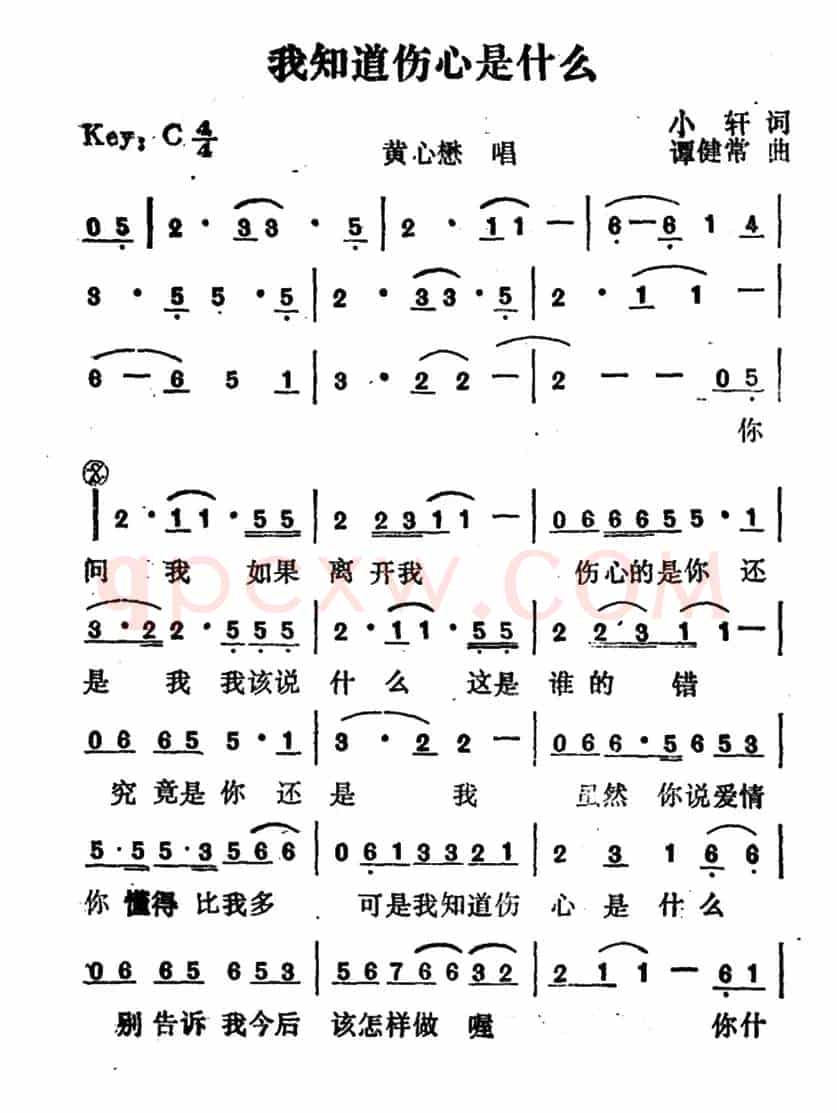 我知道伤心是什么
Key: C 4/4
小轩 词
黄心懋 唱
谭健常 曲
0 5 | 2 · 3 3 · 5 | 2 · 1 1 — | 6 — 6 1 4 |
3 · 5 5 · 5 | 2 · 3 3 · 5 | 2 · 1 1 —
6 — 6 5 1 | 3 · 2 2 — | 2 — — 0 5 |
你
| 2 · 1 1 · 5 5 | 2 2 3 1 1 — | 0 6 6 6 6 5 5 · 1 |
问 我 如果 离 开我 伤心的是你 还
qpcxw.COM
3 · 2 2 · 5 5 5 | 2 · 1 1 · 5 5 | 2 2 · 3 1 1 — |
是 我 我该说 什 么 这是 谁的 错
0 6 6 5 5 · 1 | 3 · 2 2 — | 0 6 6 · 5 6 5 3 |
究 竟是 你 还 是 我 虽然 你说爱情
5 · 5 5 · 3 5 6 6 | 0 6 1 3 3 2 1 | 2 3 1 6 6 |
你 懂得 比我多 可是我知道伤 心 是 什 么
0 6 6 5 6 5 3 | 5 6 7 6 6 3 2 | 2 1 1 — 6 1 |
别 告诉 我今后 该怎样做 喔 你什